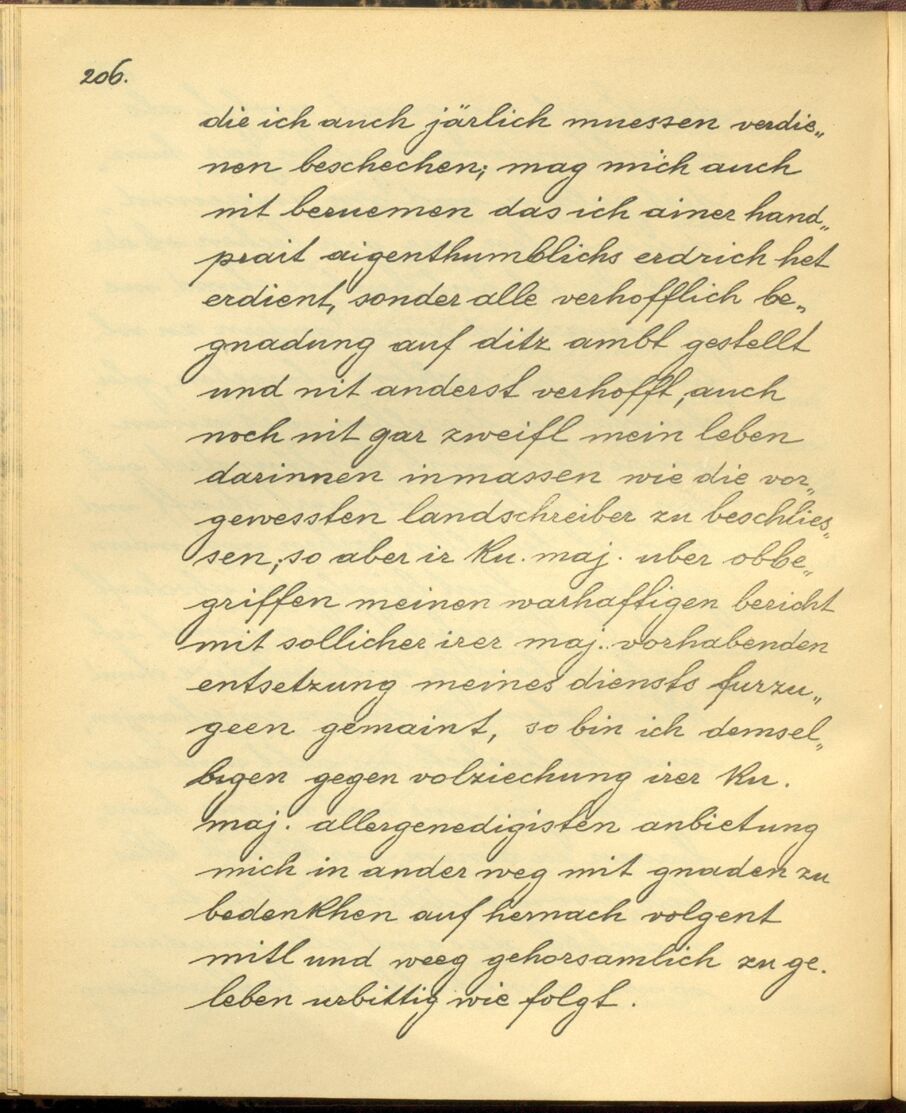 206.
die ich auch järlich muessen verdie„
nen beschechen; mag mich auch
nit beruemen das ich ainer hand„
prait aigenthumblichs erdrich het
erdient, sonder alle verhofflich be„
gnadung auf ditz ambt gestellt
und nit anderst verhofft, auch
noch nit gar zweifl mein leben
darinnen inmassen wie die vor„
gewessten landschreiber zu beschlies„
sen; so aber ir Ku. maj. uber obbe„
griffen meinen warhaftigen bericht
mit sollicher irer maj.. vorhabenden
entsetzung meines diensts furzu„
geen gemaint, so bin ich demsel„
bigen gegen volziechung irer Ku.
maj. allergenedigisten anbietung
mich in ander weg mit gnaden zu
bedenkhen auf hernach volgent
mitl und weeg gehorsamlich zu ge.
leben urbittig wie folgt.